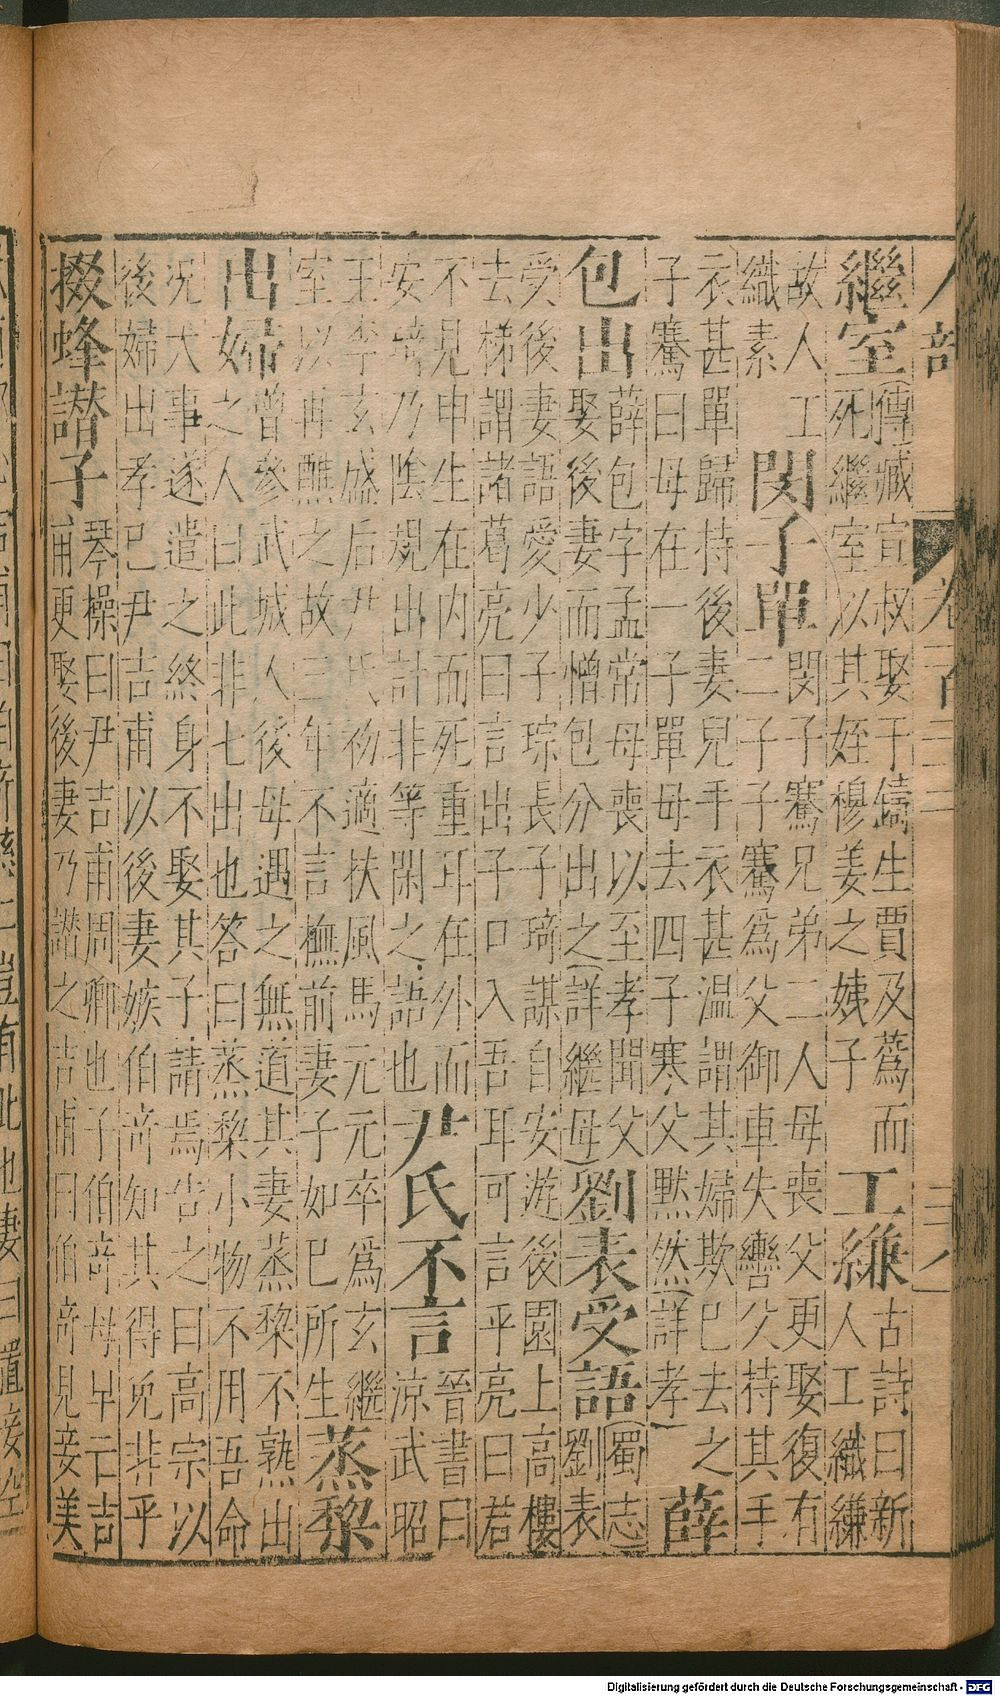 人部
繼室(傳臧宣叔娶于鑄生賈及蒍而
死繼室以其姪穆姜之姨子
工縑古詩曰新
人工織縑
故人工
織素
閔子單閔子騫兄弟二人母喪父更娶復有
二子子騫為父御車失轡父持其手
衣甚單歸持後妻兒手衣甚温謂其婦欺已去之
子騫曰母在一子單母去四子寒父默然(詳孝)
薛
包出薛包字孟常母喪以至孝聞父
娶後妻而憎包分出之(詳繼母)
劉表受語(蜀志)
劉表
受後妻語愛少子琮長子琦謀自安游後園上高樓
去梯謂諸葛亮曰言出子口入吾耳可言乎亮曰君
不見申生在内而死重耳在外而
安琦乃陰規出計非等閑之語也
尹氏不言晉書曰
涼武昭
王李玄盛后尹氏初適扶風馬元元卒爲玄繼
室以再醮之故三年不言撫前妻子如已所生
蒸黎
出婦曾參武城人後母遇之無道其妻蒸黎不熟出
之人曰此非七出也答曰蒸黎小物不用吾命
况大事遂遣之終身不娶其子請焉告之曰高宗以
後婦出孝已尹吉甫以後妻嫉伯奇知其得免非乎
掇蜂譖子琴操曰尹吉甫周卿也子伯奇母早亡吉
甫更娶後妻乃譖之吉甫曰伯奇見妾美
Digitalisierung gefördert durch die Deutsche Forschungsgemeinschaft - DFG